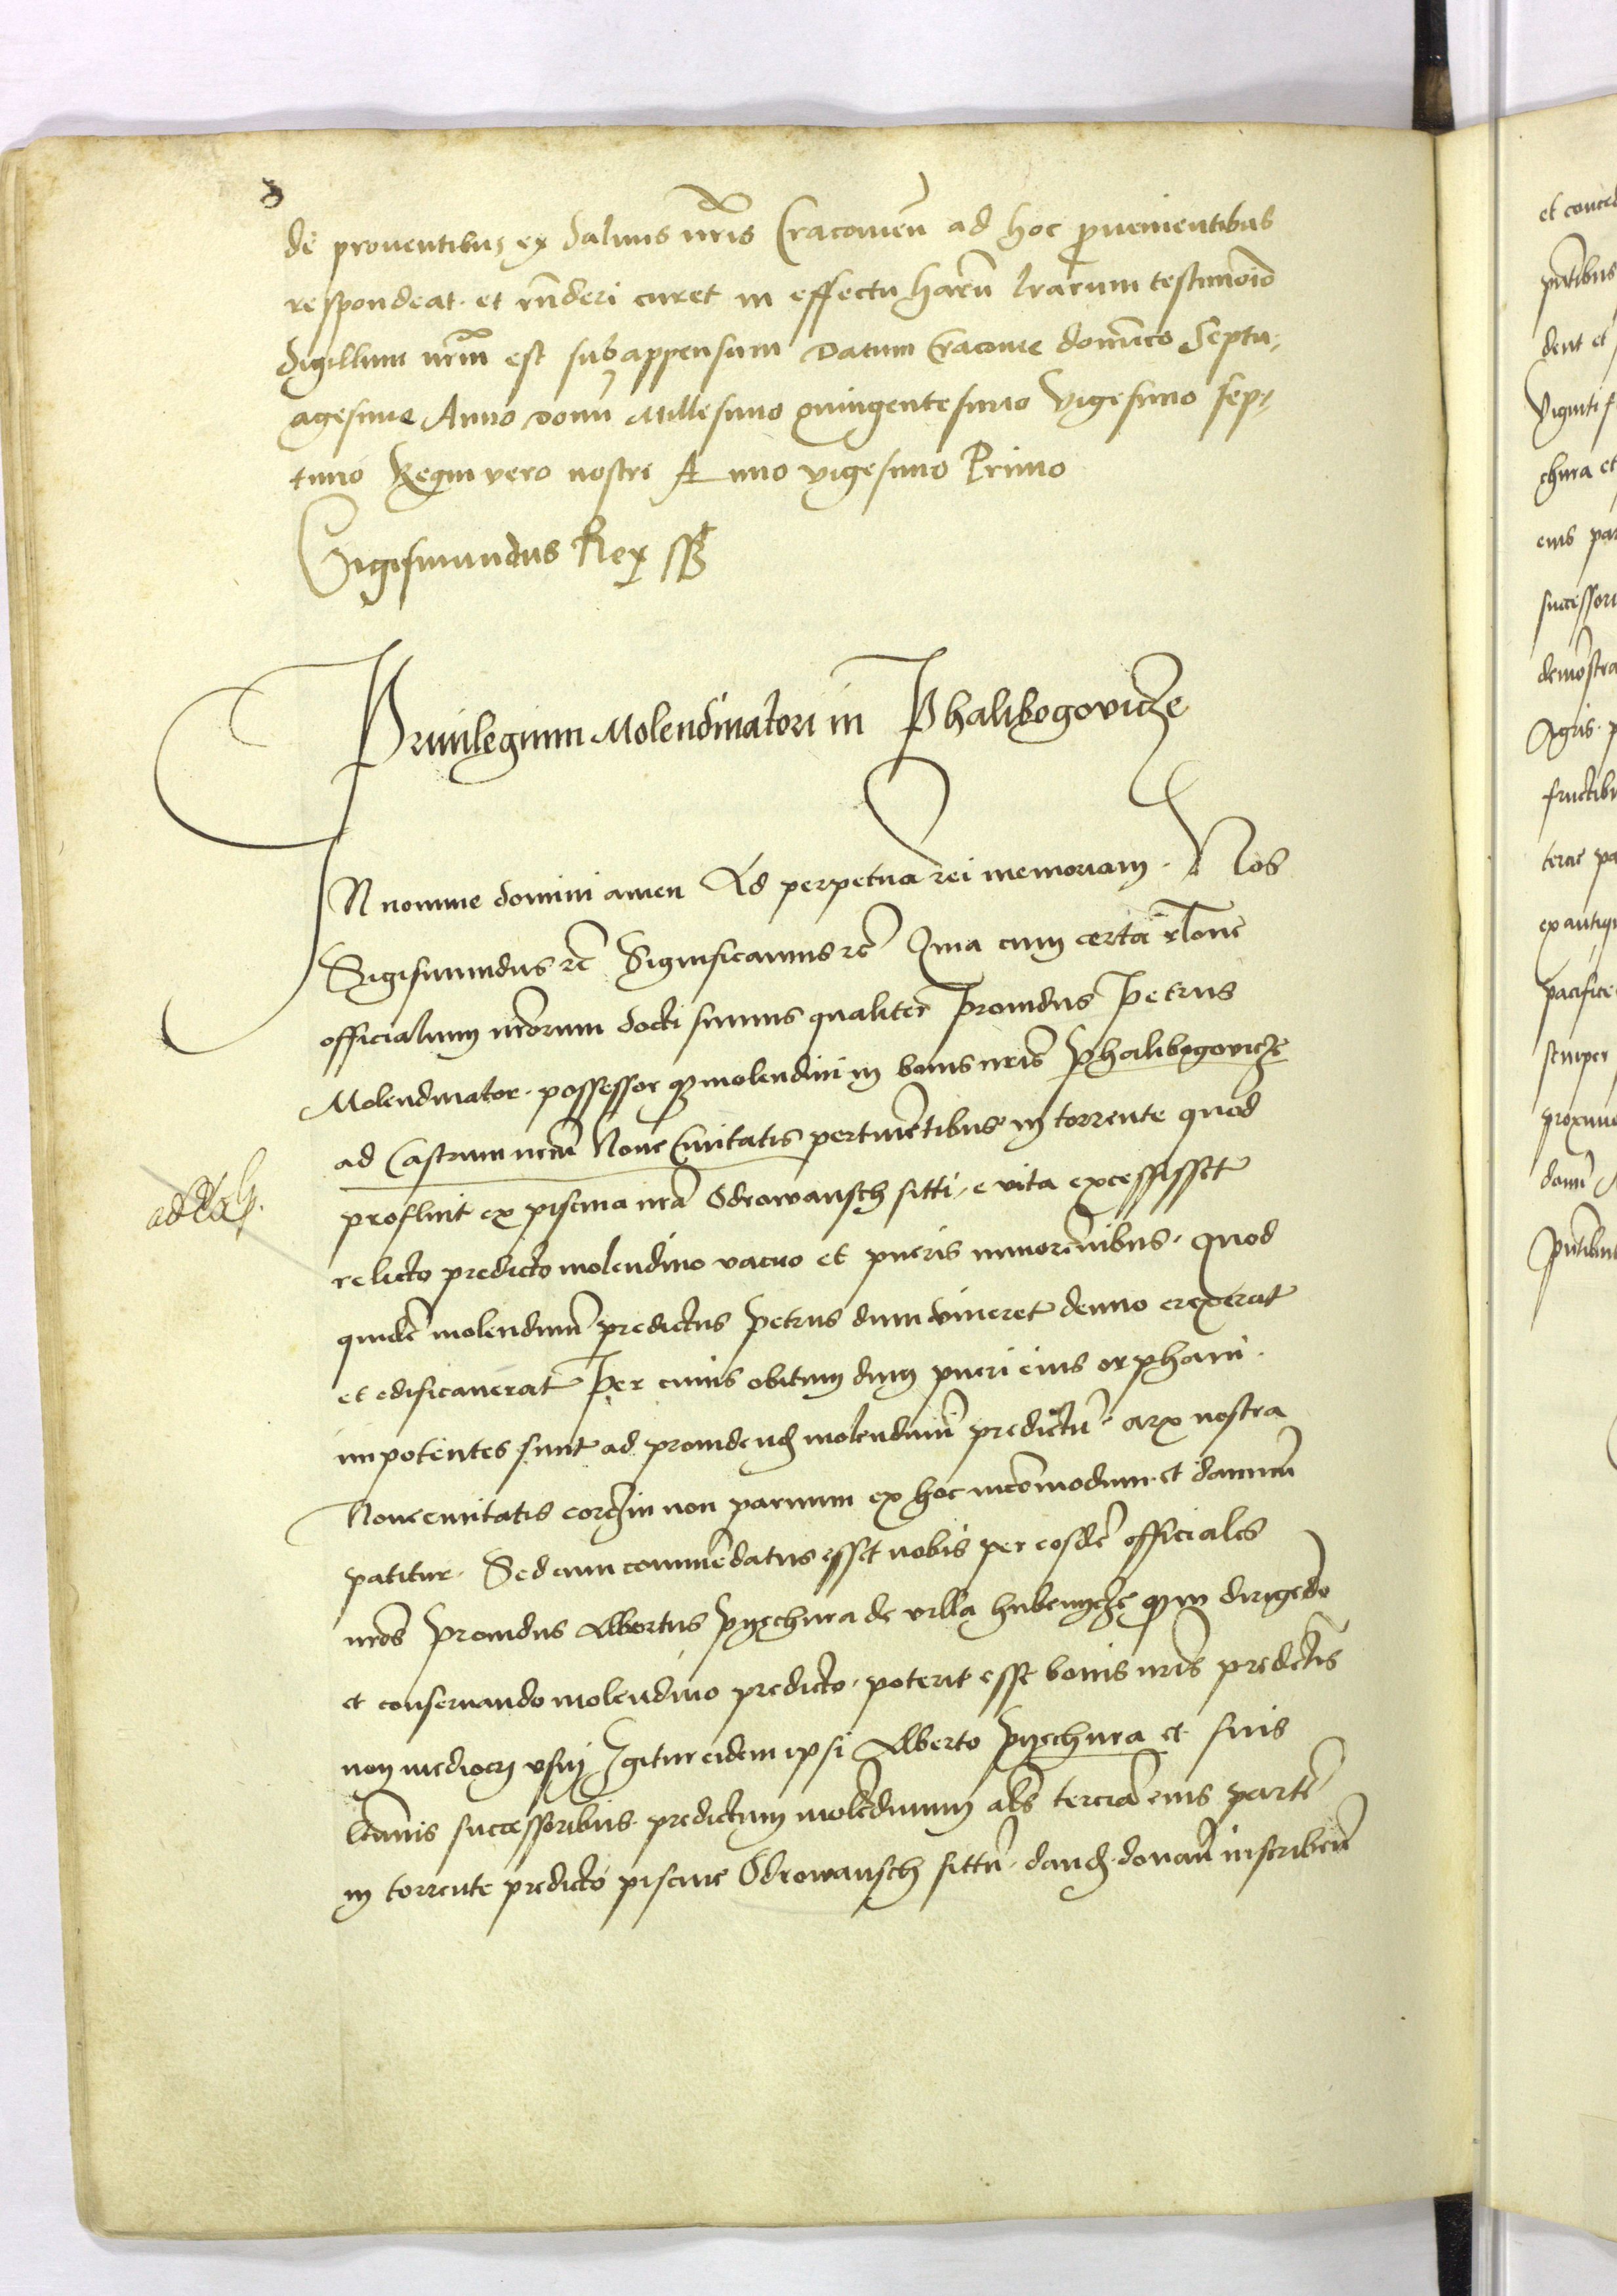 de proventibus ex salinis nris Cracovien ad hoc pvenientibus
respondeat et rnderi curet in effectu harū lrarum testimoīo
Sigillum nrm̄ est subappensum Datum Cracovie dominico Septu-
agesime Anno domī Millesimo quingentesimo Vigesimo sep-
timo Regni vero nostri Anno vigesimo Primo
Sigismundus Rex sst
Privilegium Molendinatori in Phalibogovicze
IN nomine domini amen Ad perpetuā rei memoriam. Nos
Sigismundus rc̄ Significamus rc̄ Quia cum certā rlone
officialium nrorum docti sumus qualiter providus Petrus
Molendinator. possessor q molendini in bonis nris Phalibogovicze
ad Castrum nrm̄ Nove Civitatis pertinētibus in torrente quod
profluit ex piscina nrā Odrowansch sitti, e vita excessisset
relicto predicto molendino vacuo et pueris minorēnibus. quod
quidē molendinū predictus Petrus dum viveret denuo erexerat
et edificaverat Per cuius obitum dum pueri eius orphani.
impotentes sunt ad providend molendinū predictū. arx nostra
Novecivitatis corczin non parvum ex hoc incōmodum et damnū
patitur. Sed cum commēdatus esset nobis per eosdē officiales
nros providus Albertus Pyechura de villa hubenycze q in dirigēdo
et conservando molendino predicto. poterit esse bonis nris predictis
non mediocri usui Igitur eidem ipsi Alberto Pyechura et suis
ltimis successoribus predictum molēdinum als terciā eius partē
in torrente predicto piscine Odrowansch sittū. dand. donan inscribēn